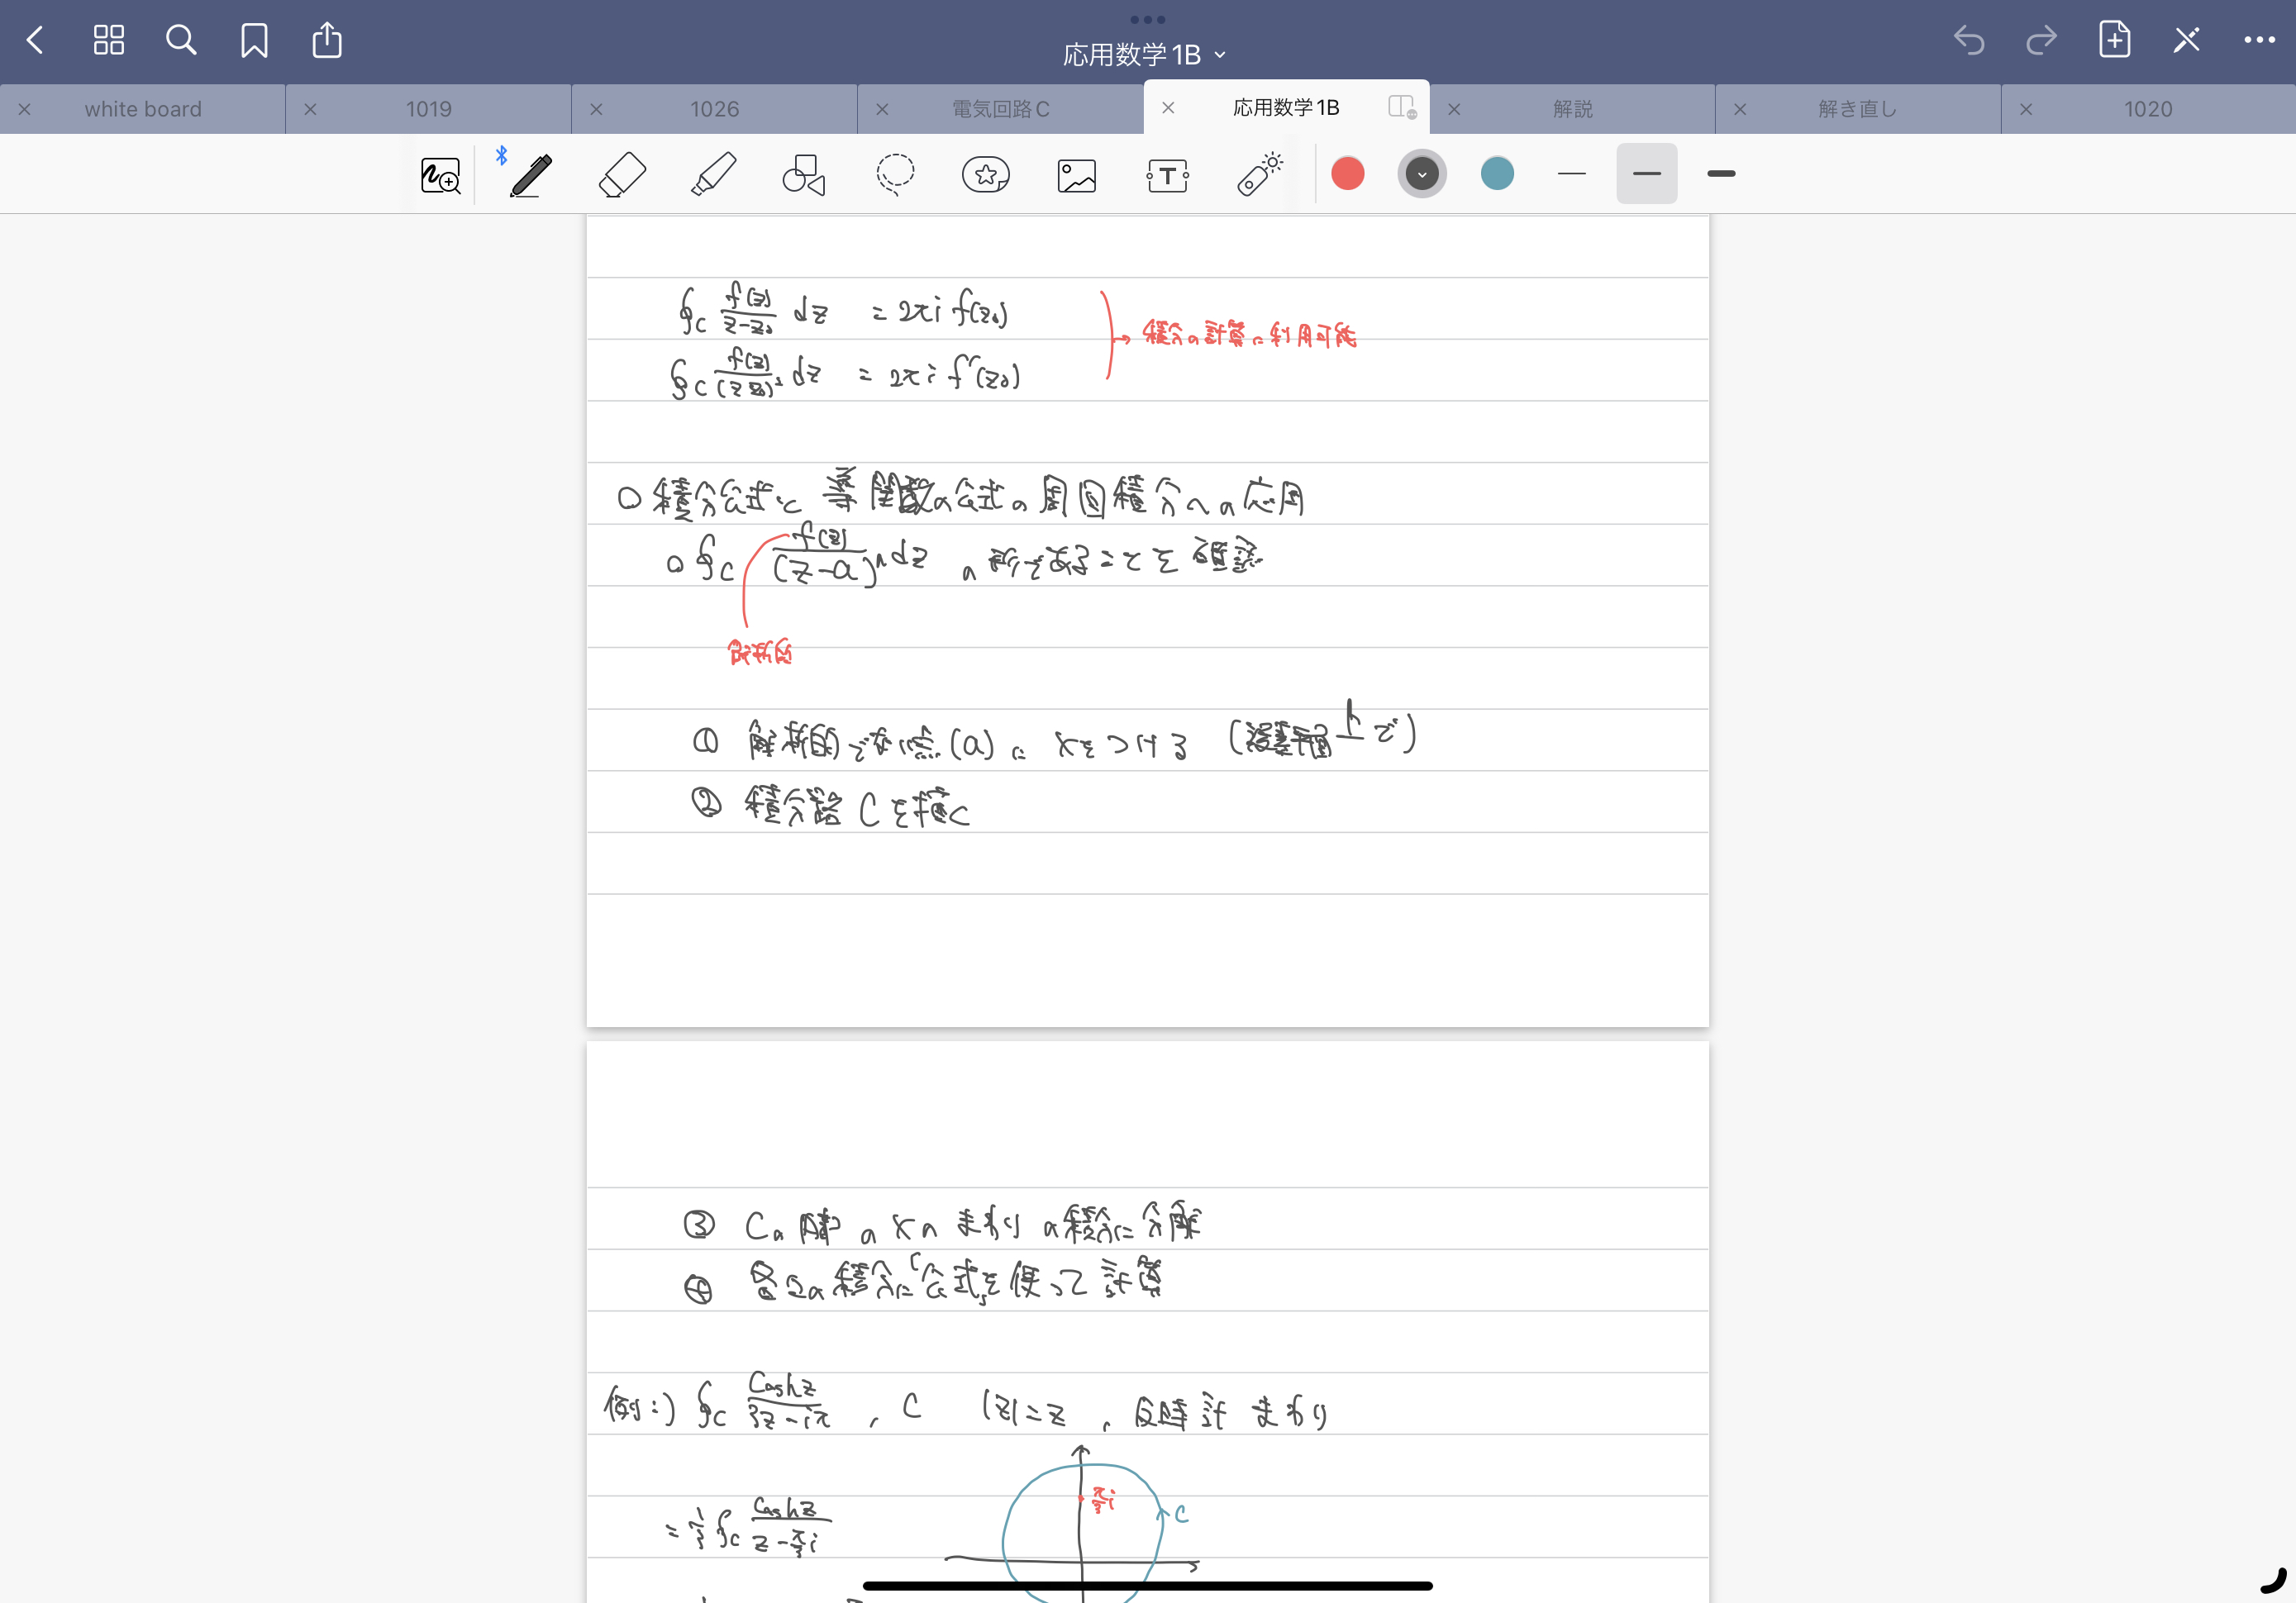 応用数学1B
white board
1019
1026
電気回路C
応用数学1B
解説
解き直し
1020
∮c f(z)/(z-z₀) dz = 2πi f(z₀)
→ 積分の計算に利用可能
∮c f(z)/(z-z₀)² dz = 2πi f'(z₀)
○積分公式と導関数の公式の周回積分への応用
○ ∮c f(z)/(z-a)ⁿ dz の形であることを確認
① 解析的でない点(a)に×をつける (複素平面上で)
② 積分路 Cを描く
③ Cの内部の×のまわりの積分に分解
④ 各々の積分に公式を使って計算
例:) ∮c coshz/(3z-iπ) , C |z|=2 , 反時計まわり
π/3 i
C
= 1/3 ∮c coshz/(z-π/3 i)